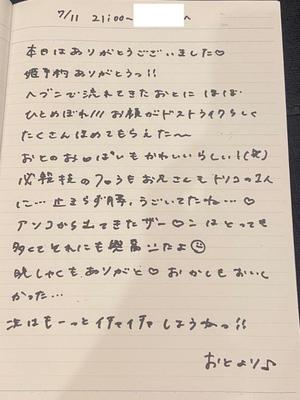 7/11 21:00〜 へ
本日はありがとうございました♡
姫予約ありがとうっ!!
ヘブンで流れてきたおとにほぼ
ひとめぼれ!!! お顔がドストライクらしく
たくさんほめてもらえた〜
おとのお□ぱいもかわいいらしい!(笑)
必殺技のフ□うもお兄さんもトリコの1人
に… 止まらず腰、うごいてたね…♡
アソコから出てきたザー□ンはとっても
多くてそれにも興奮したよ☺
晩しゃくもありがと♡ おかしもおいし
かった…
次はもーっとイチャイチャしようねっ!!
おとより♪